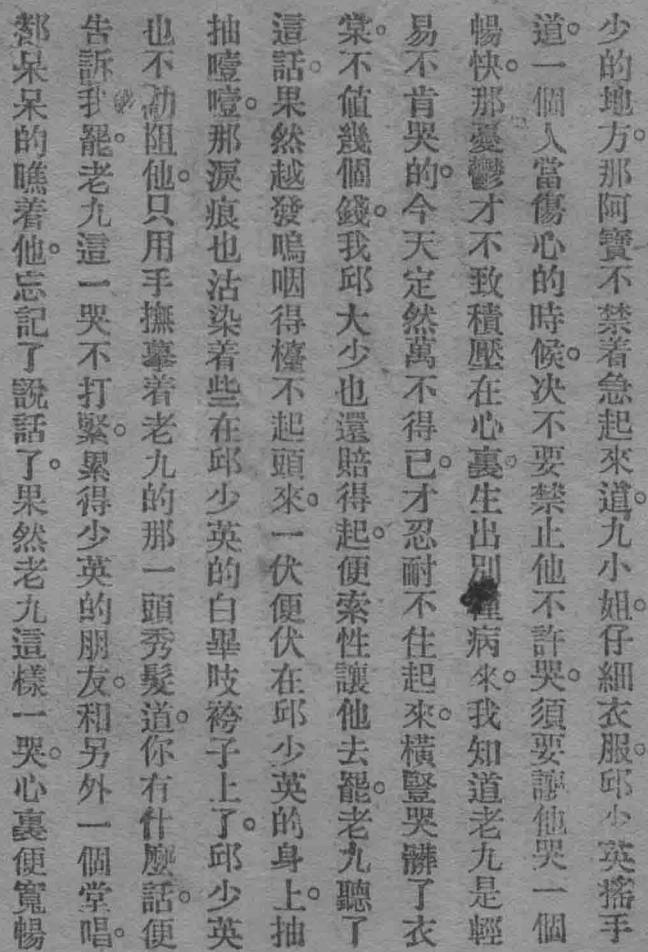 少的地方。那阿寶不禁着急起來道。九小姐。仔細衣服。邱少英搖手
道。一個人當傷心的時候。决不要禁止他不許哭。須要讓他哭一個
暢快。那憂鬱才不致積壓在心裏。生出別種病來。我知道老九是輕
易不肯哭的。今天定然萬不得已。才忍耐不住起來。橫豎哭髒了衣
裳。不值幾個錢。我邱大少也還賠得起。便索性讓他去罷。老九聽了
這話。果然越發嗚咽得檯不起頭來。一伏便伏在邱少英的身上。抽
抽噎噎。那淚痕也沾染着些在邱少英的白畢吱袴子上了。邱少英
也不勸阻他。只用手撫摹着老九的那一頭秀髮道。你有什麼話。便
告訴我罷。老九這一哭不打緊。累得少英的朋友。和另外一個堂唱。
都呆呆的瞧着他。忘記了說話了。果然老九這樣一哭。心裏便寬暢